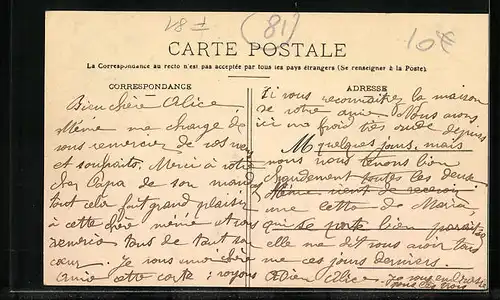 28 =
(81)
10€
CARTE POSTALE
La Correspondance au recto n'est pas acceptée par tous les pays étrangers (Se renseigner à la Poste)
CORRESPONDANCE
Bien chère Alice,
Mémé me charge de
vous remercier de vos vœux
et souhaits. Merci à votre
cher Papa de son
tout cela fait grand plaisir
à cette chère mémé et vous
remercie tous de tout son
cœur. Je vous envoie chère
Amie cette carte: voyons
ADRESSE
si vous reconnaîtrez la maison
de votre amie. Nous avons
ici un froid très rude depuis
quelques jours, mais
nous nous tenons bien
chaudement toutes les deux.
Mémé vient de recevoir
une lettre de Maria,
qui se porte bien paraît-il
elle me dit vous avoir
ces jours derniers.
Adieu Alice. Je vous embrasse
tous les trois